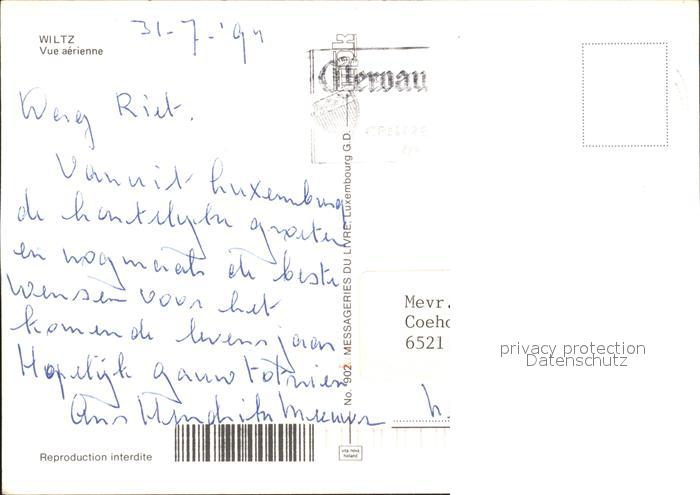 WILTZ
Vue aérienne
31-7-'94
Dag Riet.
Vanuit Luxemburg
de hartelijke groeten
en nogmaals de beste
wensen voor het
komende levensjaar
Hopelijk gauw tot ziens
Ans
Clervaux
No. 902 MESSAGERIES DU LIVRE, Luxembourg G.D.
Mevr.
Coeho
6521
privacy protection
Datenschutz
vita nova
holland
Reproduction interdite